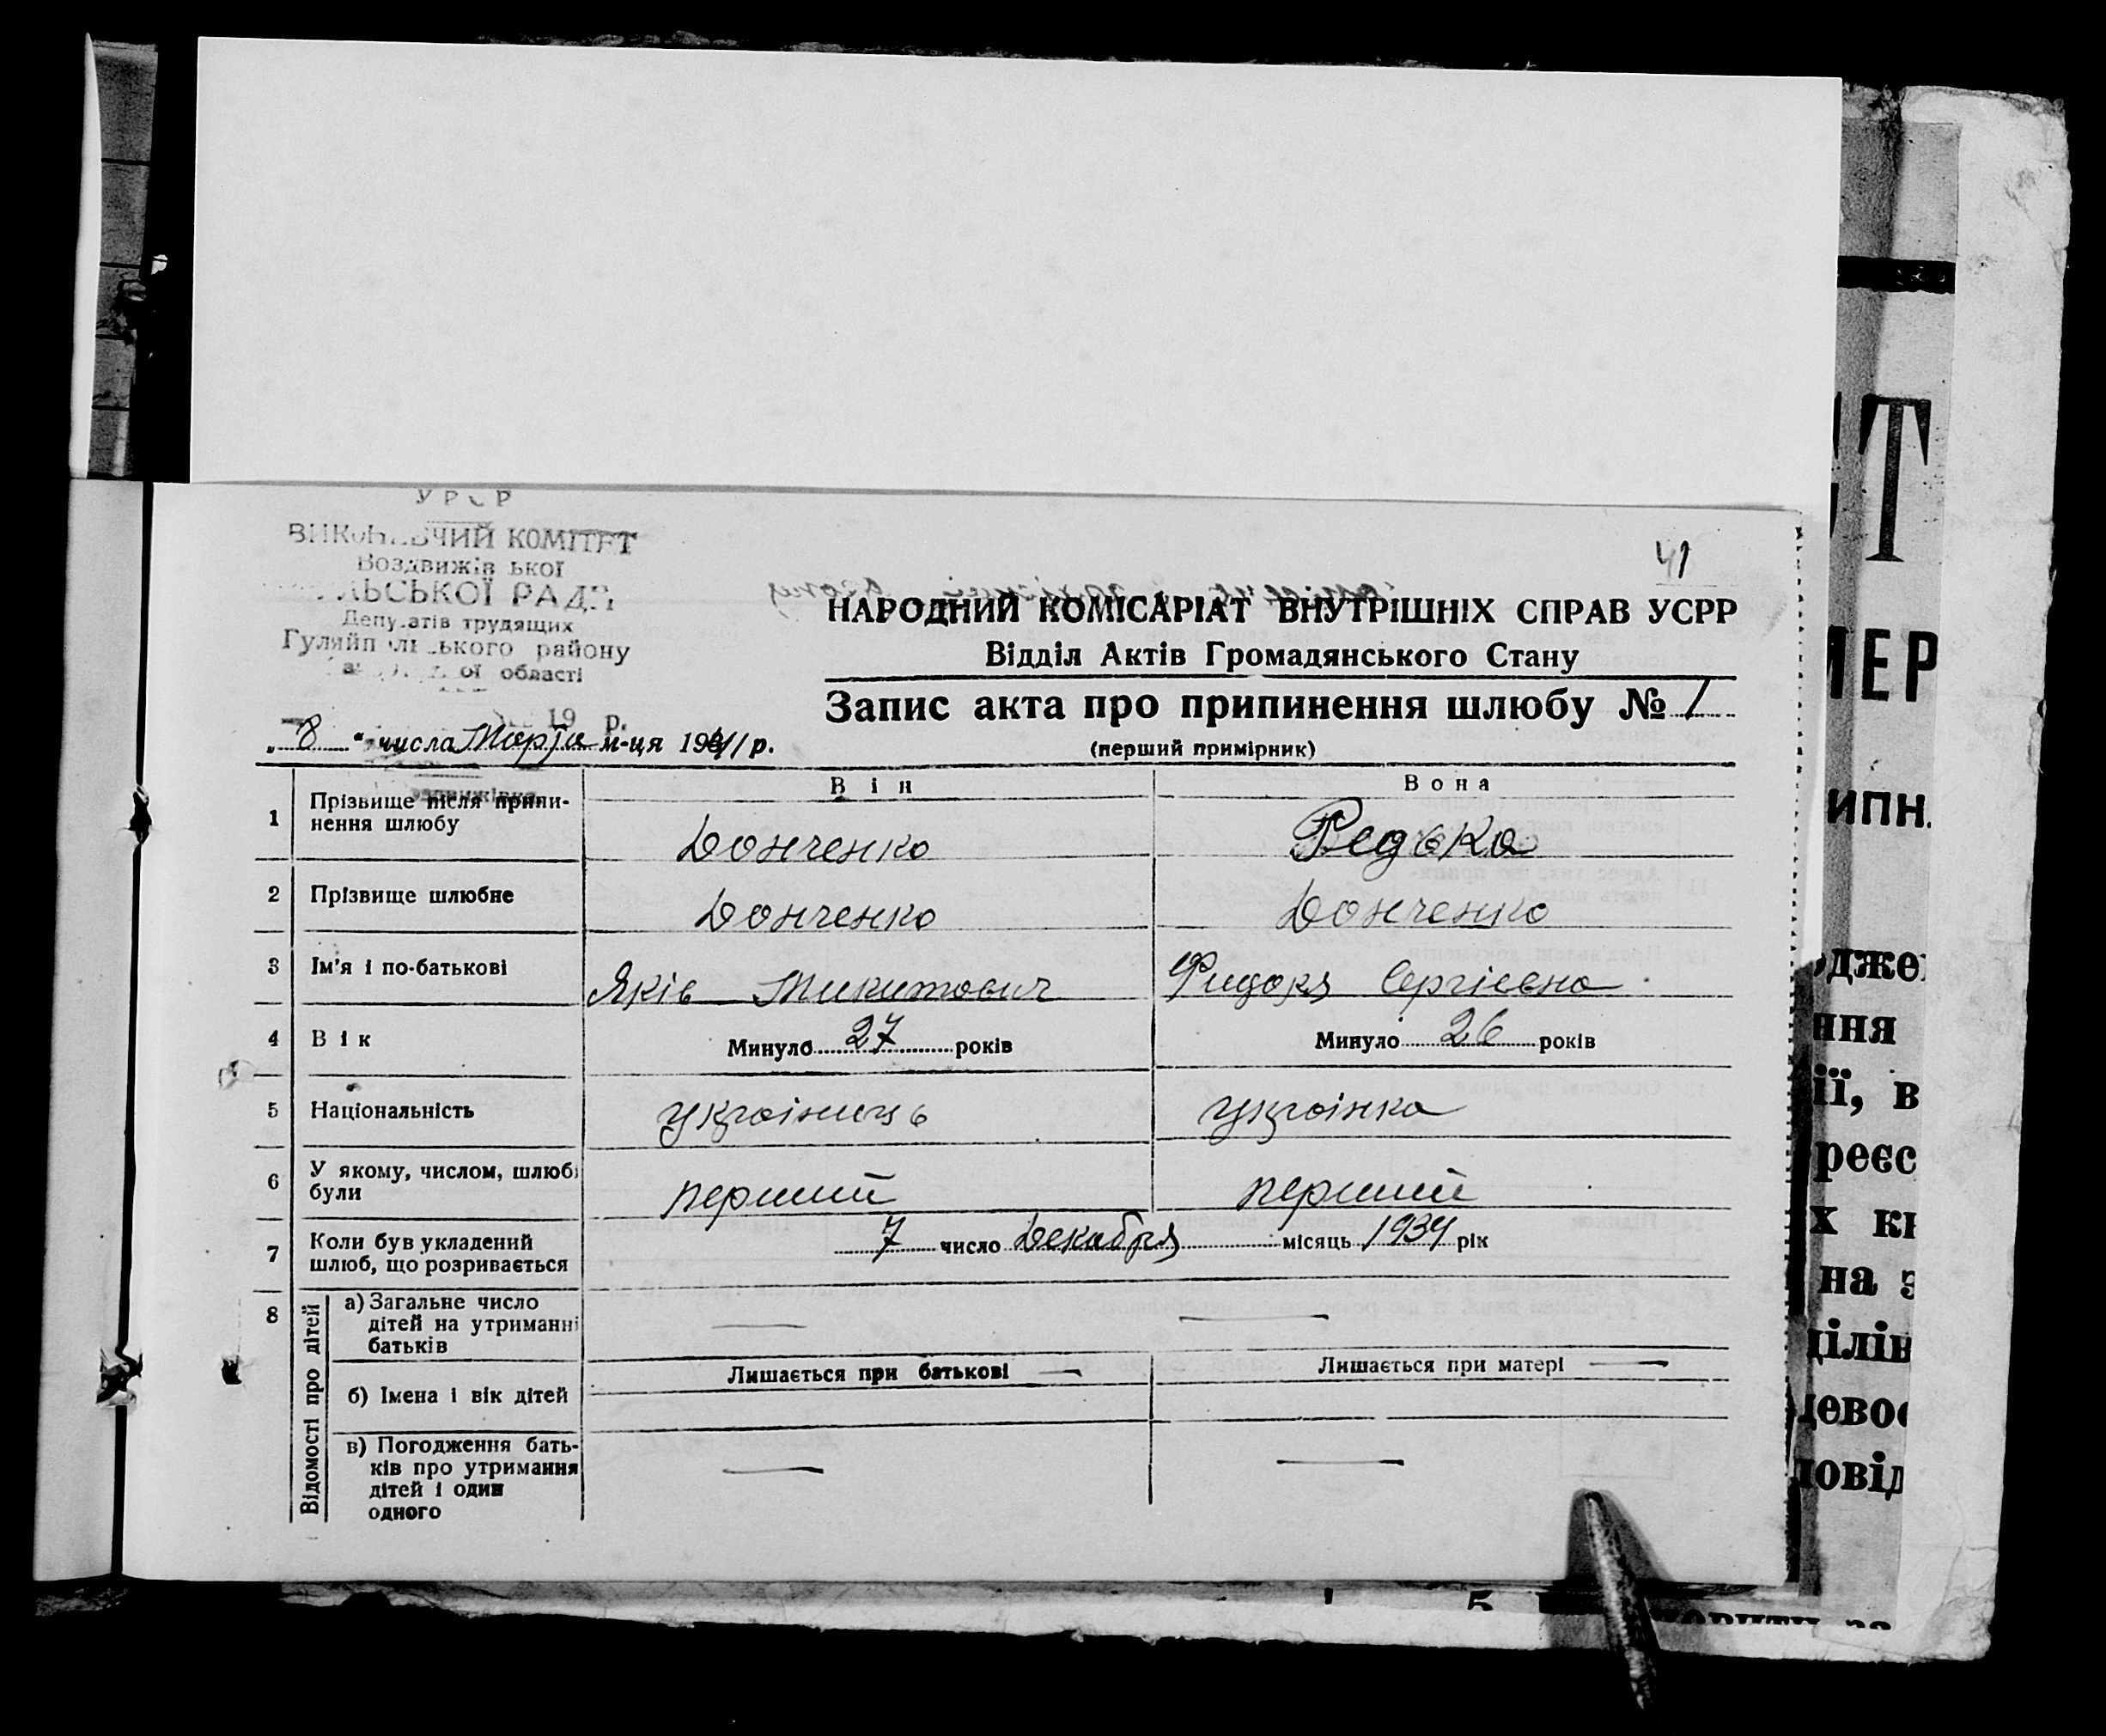 УРСР
ВИКОНАВЧИЙ КОМІТЕТ
Воздвижівської
СІЛЬСЬКОЇ РАДИ
Депутатів трудящих
Гуляйпільського району
області
19 р.
41
НАРОДНИЙ КОМІСАРІАТ ВНУТРІШНІХ СПРАВ УСРР
Відділ Актів Громадянського Стану
Запис акта про припинення шлюбу № 1
(перший примірник)
„8“ числа Марта м-ця 1941 р.
Він
Вона
1 Прізвище після припи-
нення шлюбу
Донченко
Редька
2 Прізвище шлюбне
Донченко
Донченко
3 Ім'я і по-батькові
Яків Микитович
Фидора Сергієвна
4 Вік
Минуло 27 років
Минуло 26 років
5 Національність
українець
українка
6 У якому, числом, шлюбі
були
перший
перший
7 Коли був укладений
шлюб, що розривається
7 число Декабря місяць 1934 рік
8 Відомості про дітей
а) Загальне число
дітей на утриманні
батьків
—
—
Лишається при батькові —
Лишається при матері —
б) Імена і вік дітей
в) Погодження бать-
ків про утримання
дітей і один
одного
—
—
ИТ
МЕР
ипн.
дже
ння
ії, в
реєс
х кн
на з
ділін
девос
повід
5